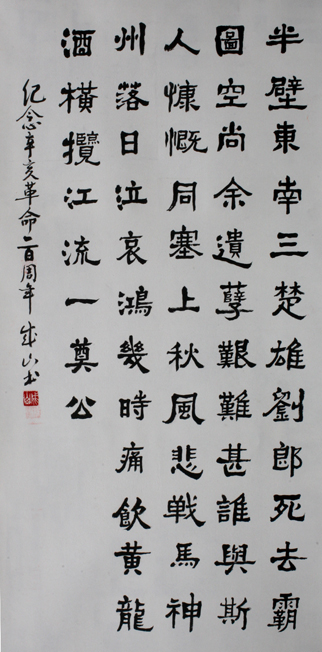 半壁東南三楚雄劉郎死去霸
圖空尚余遺孽艱難甚誰與斯
人慷慨同塞上秋風悲戦馬神
州落日泣哀鴻幾時痛飲黄龍
酒橫攬江流一奠公
纪念辛亥革命一百周年 成山书